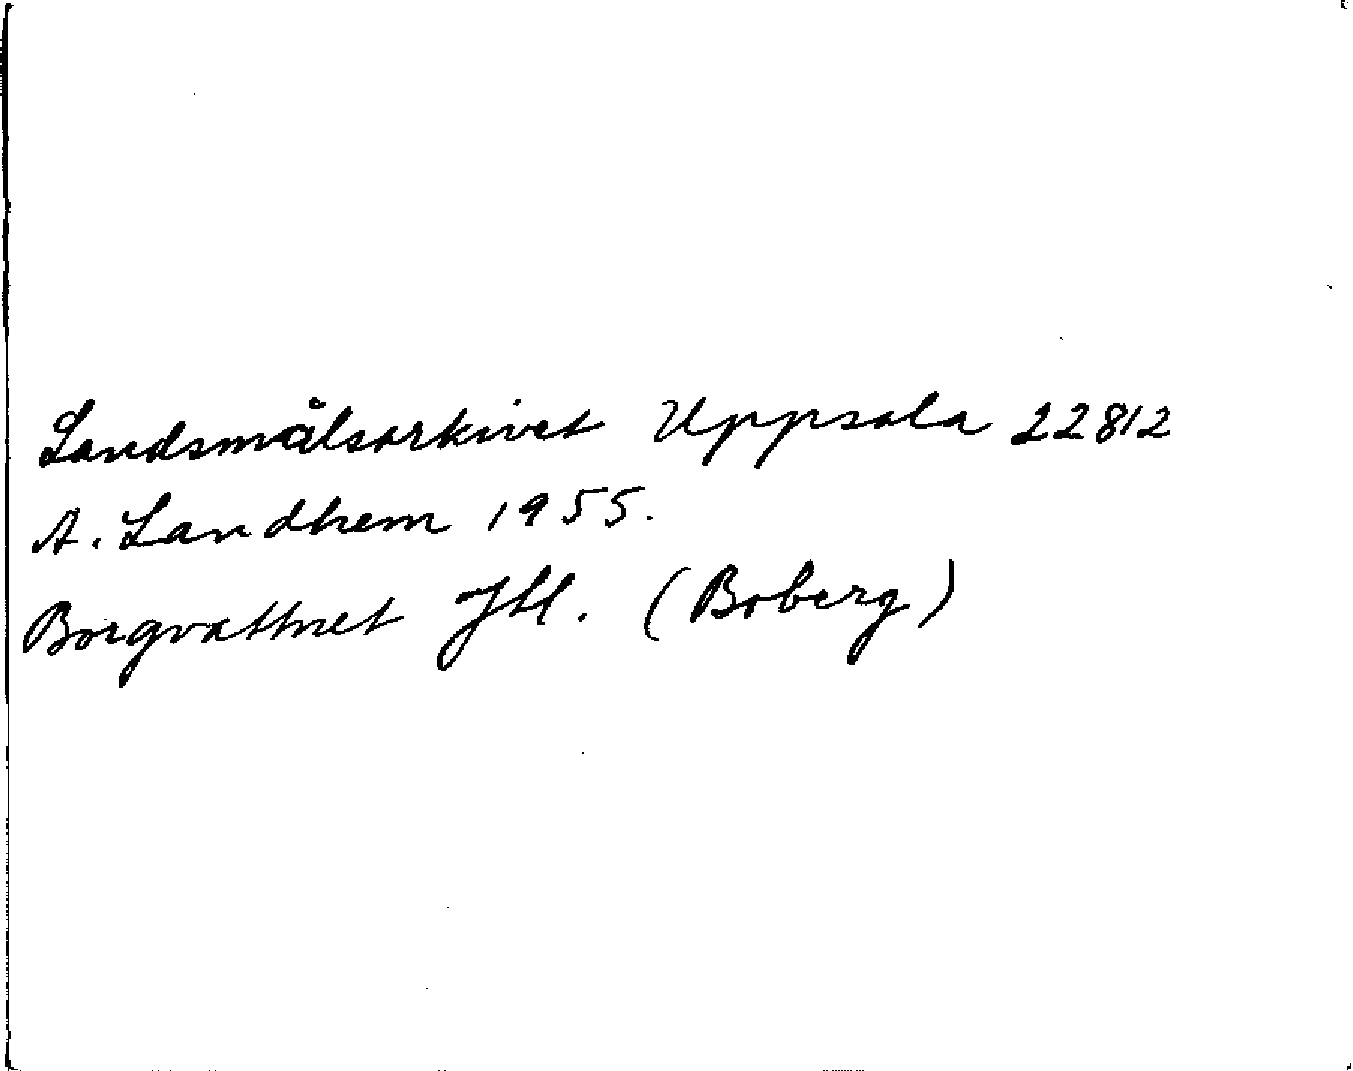 Landsmålsarkivet Uppsala 22812
A. Landhem 1955.
Borgvattnet Jtl. (Boberg)